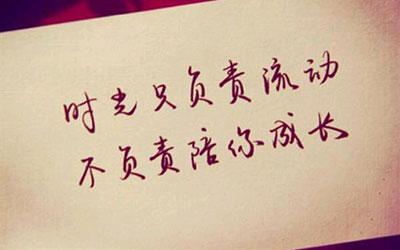 时光只负责流动
不负责陪你成长